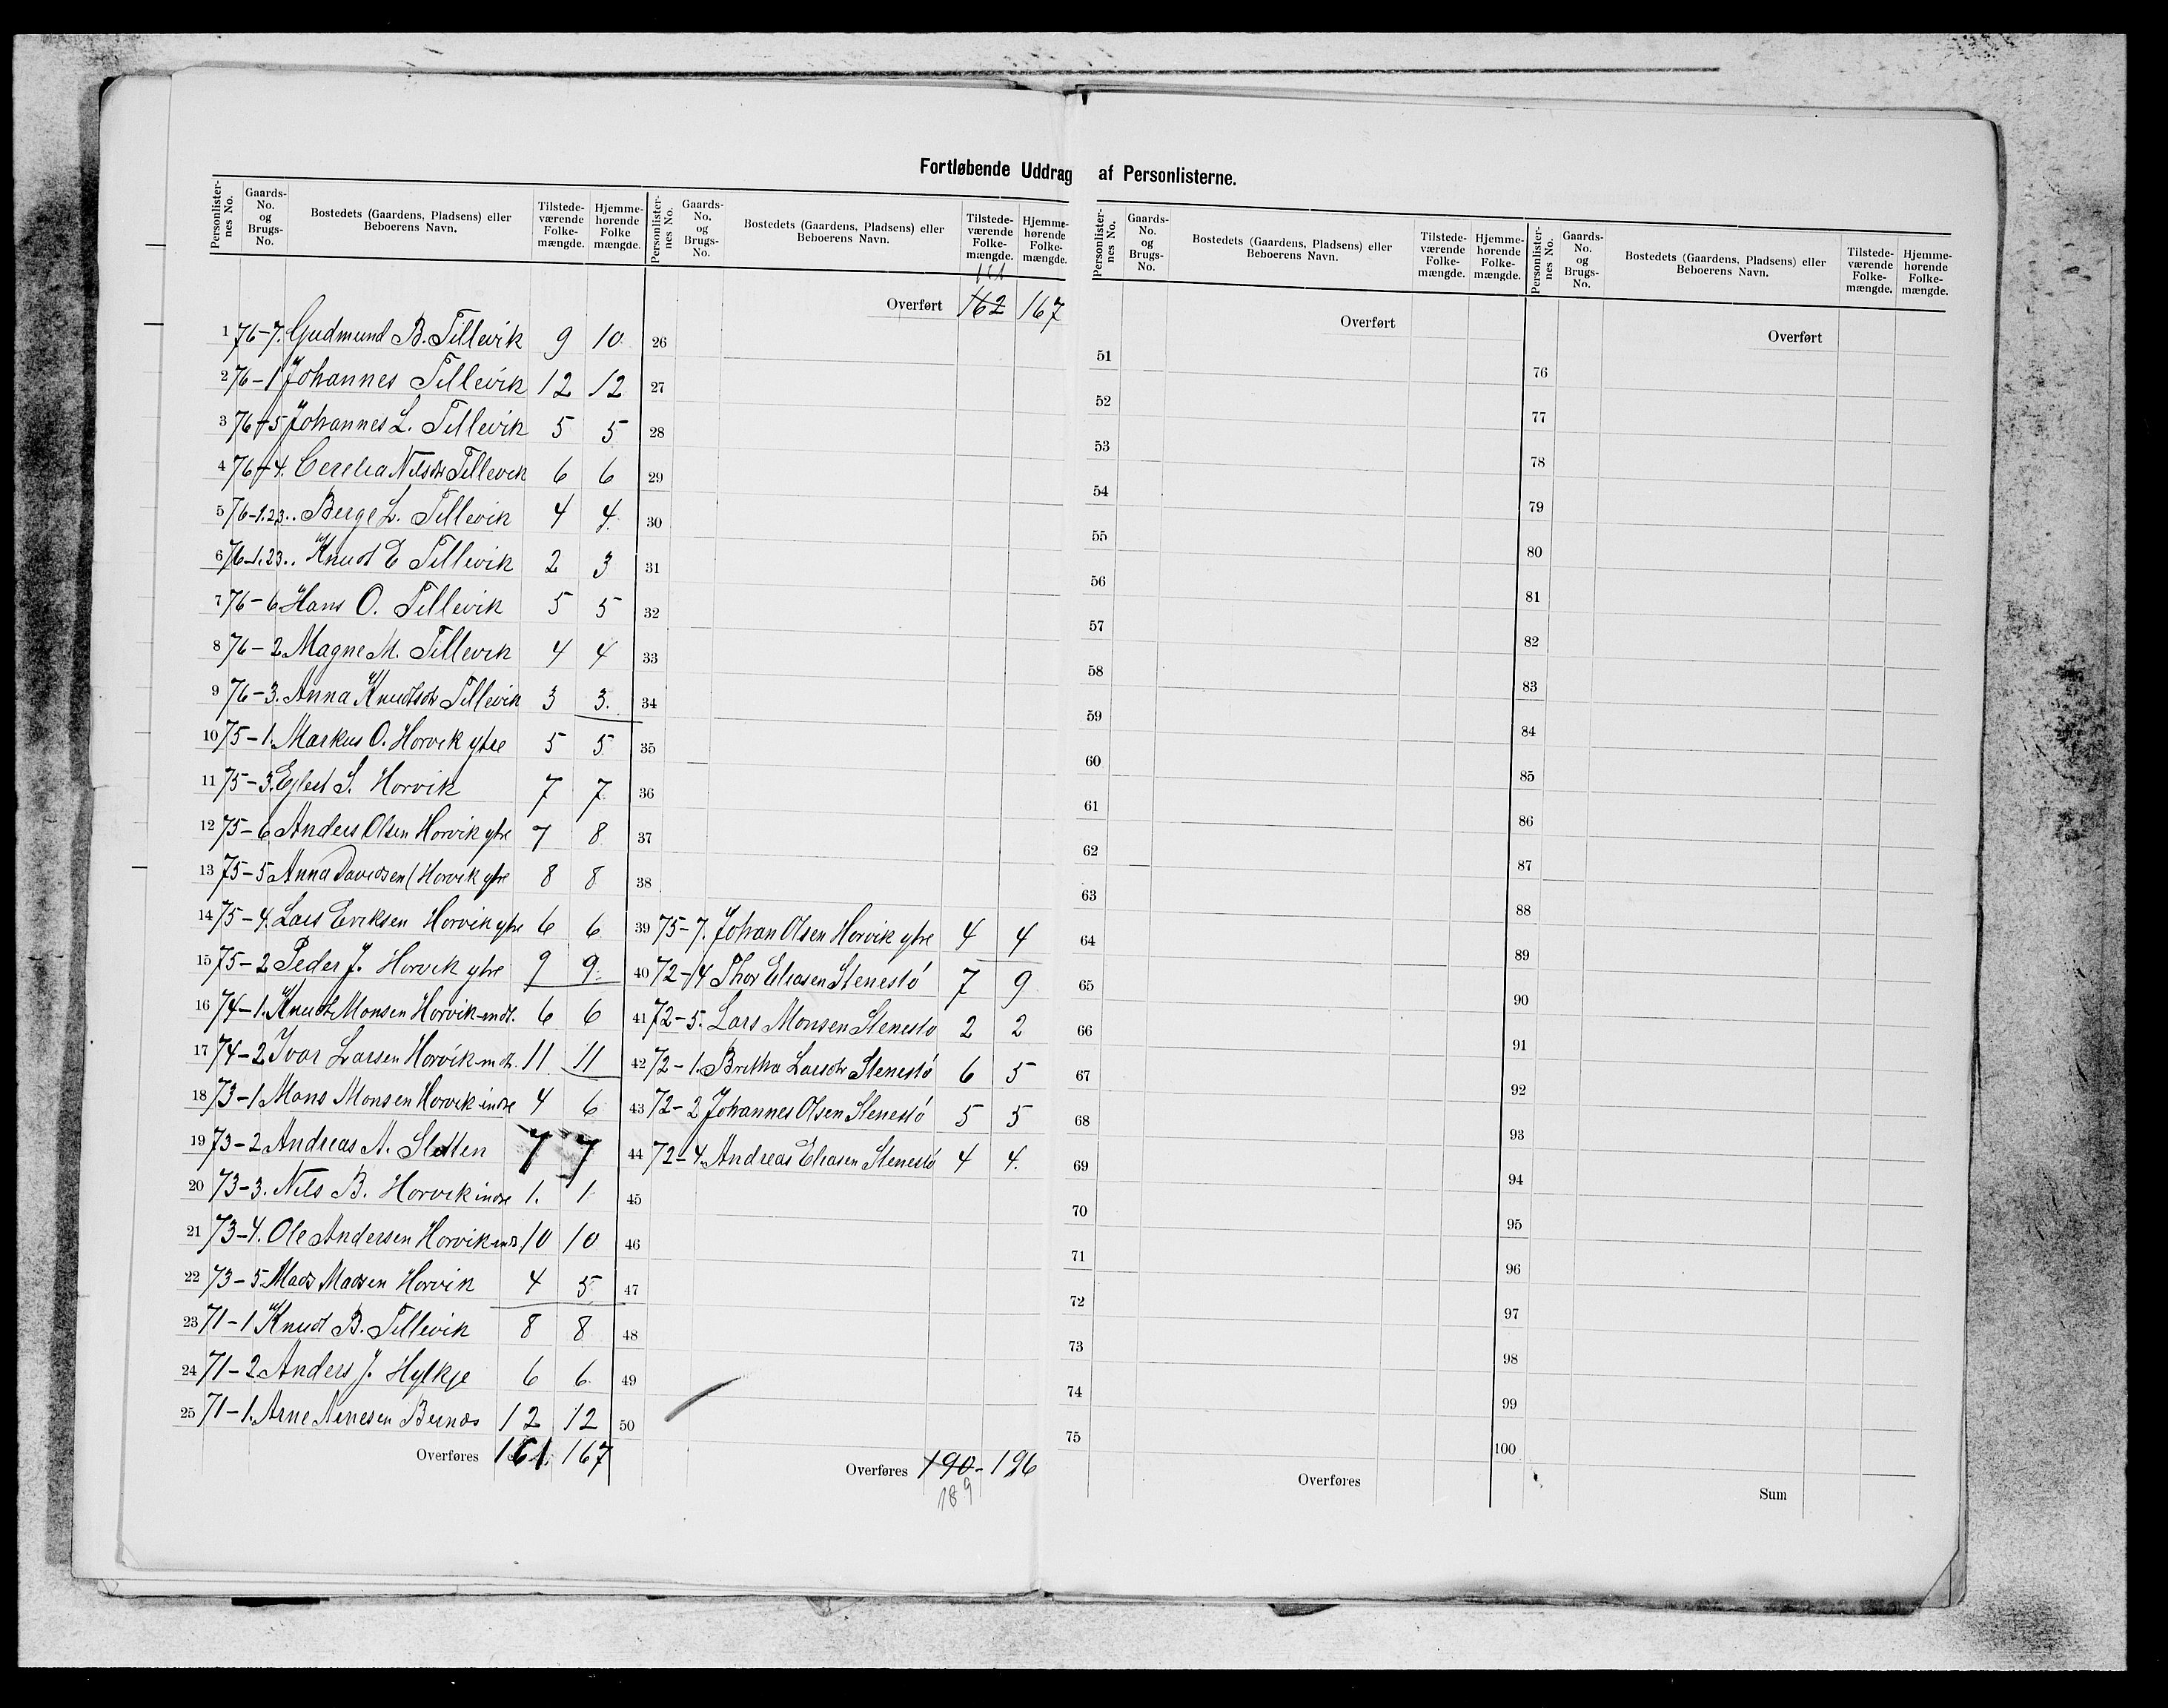 Fortløbende Uddrag af Personlisterne.
Personlisternes No. Gaards-No. og Brugs-No. Bostedets (Gaardens, Pladsens) eller Beboerens Navn. Tilstedeværende Folkemængde. Hjemmehørende Folke mængde.
1 76-7. Gudmund B. Tillevik 9 10
2 76-1 Johannes Tillevik 12 12
3 76-5 Johannes L. Tillevik 5 5
4 76-4. Cecelia Nilsdtr Tillevik 6 6
5 76-1.2.3.. Berge L. Tillevik 4 4.
6 76-1.23.. Knud E Tillevik 2 3
7 76-6 Hans O. Tillevik 5 5
8 76-2 Magne M. Tillevik 4 4
9 76-3. Anna Knudtsdtr Tillevik 3 3.
10 75-1. Markus O. Horvik ytre 5 5
11 75-3. S. Horvik 7 7.
12 75-6 Anders Olsen Horvik ytre 7 8
13 75-5 Anna Davidsen (Horvik ytre 8 8
14 75-4. Lars Eriksen Horvik ytre 6 6
15 75-2 Peder J. Horvik ytre 9 9.
16 74-1. Knudt Monsen Horvik indr. 6 6
17 74-2 Ivar Larsen Horvik indr. 11 11
18 73-1 Mons Monsen Horvik indre 4 6
19 73-2 Andreas A. Sletten 7 7
20 73-3. Nils B. Horvik indre 1. 1
21 73-4. Ole Andersen Horvik indr 10 10
22 73-5 Mads Madsen Horvik 4 5
23 71-1 Knud B. Tillevik 8 8
24 71-2 Anders J. Hylkje 6 6
25 71-1. Arne Arnesen Bernæs 12 12
Overføres 161. 167
Personlisternes No. Gaards-No. og Brugs-No. Bostedets (Gaardens, Pladsens) eller Beboerens Navn. Tilstedeværende Folkemængde. Hjemmehørende Folkemængde.
161
Overført 162 167
26
27
28
29
30
31
32
33
34
35
36
37
38
39 75-7. Johan Olsen Horvik ytre 4 4
40 72-4 Thor Eliasen Stenestö 7 9
41 72-5. Lars Monsen Stenestö 2 2
42 72-1. Britha Larsdtr Stenestö 6 5
43 72-2 Johannes Olsen Stenestö 5 5
44 72-4. Andreas Eliasen Stenestö 4 4.
45
46
47
48
49
50
Overføres 190 - 196
189
Personlisternes No. Gaards-No. og Brugs-No. Bostedets (Gaardens, Pladsens) eller Beboerens Navn. Tilstedeværende Folkemængde. Hjemmehørende Folkemængde.
Overført
51
52
53
54
55
56
57
58
59
60
61
62
63
64
65
66
67
68
69
70
71
72
73
74
75
Overføres
Personlisternes No. Gaards-No. og Brugs-No. Bostedets (Gaardens, Pladsens) eller Beboerens Navn. Tilstedeværende Folkemængde. Hjemmehørende Folkemængde.
Overført
76
77
78
79
80
81
82
83
84
85
86
87
88
89
90
91
92
93
94
95
96
97
98
99
100
Sum